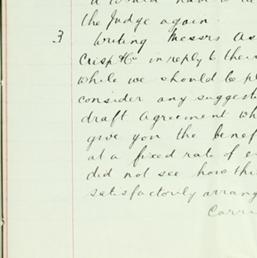 the Judge again.
3 Writing Messrs As
Crisp & Co in reply to their
while we should be pl
consider any suggest
draft Agreement wh
give you the benef
at a fixed rate of
did not see how th
satisfactorily arrang
Carri